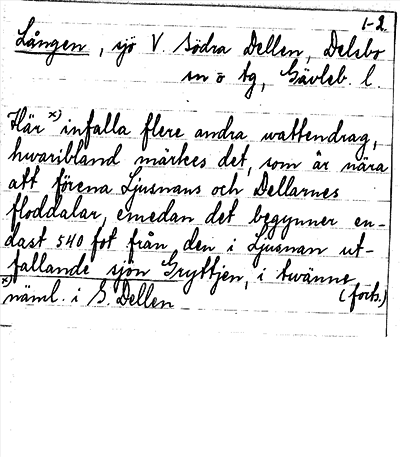 1-2.
Lången, sjö V. Södra Dellen, Delsbo
sn o tg, Gävleb. l.
Här x) infalla flere andra wattendrag,
hwaribland märkes det, som är nära
att förena Ljusnans och Dellarnes
floddalar, emedan det begynner en-
dast 540 fot från den i Ljusnan ut-
fallande sjön Gryttjen, i twänne
x) näml. i S. Dellen (forts.)